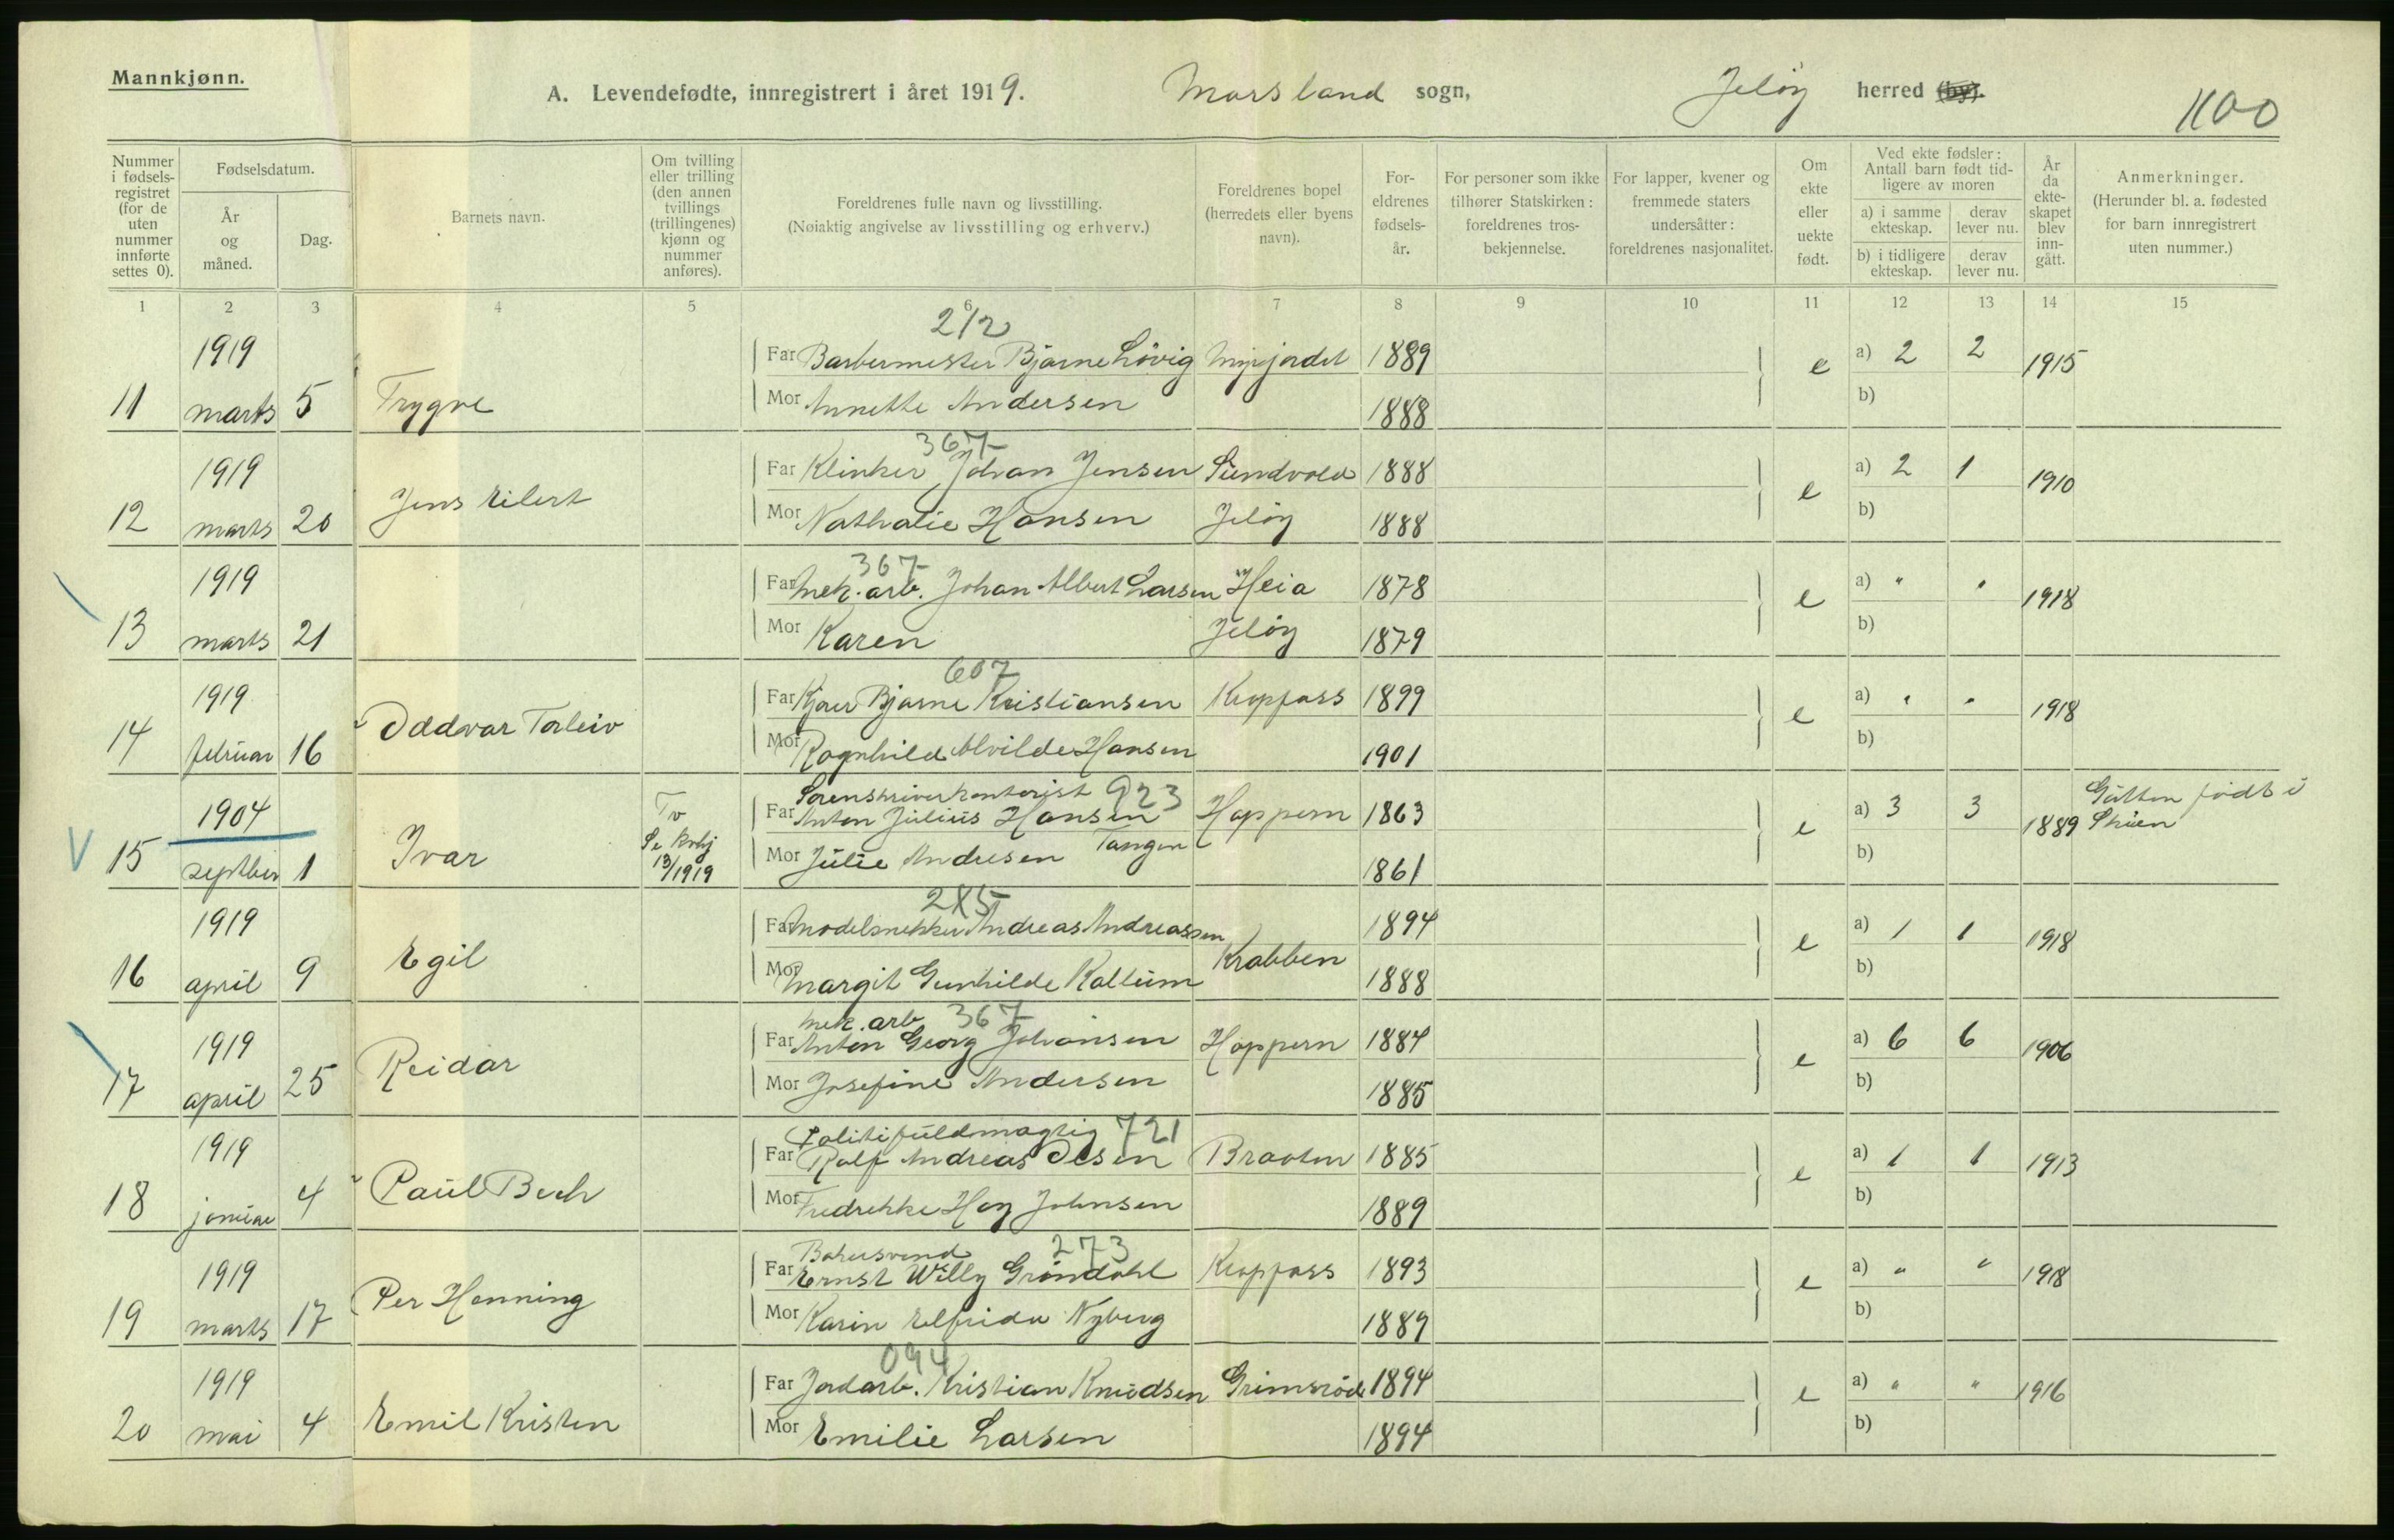 Mannkjønn.
A. Levendefødte, innregistrert i året 1919. Morsland sogn, Jeløy herred (by).
1100
Nummer i fødsels-registret (for de uten nummer innførte settes 0).
Fødselsdatum.
År og måned.
Dag.
Barnets navn.
Om tvilling eller trilling (den annen tvillings (trillingenes) kjønn og nummer anføres).
Foreldrenes fulle navn og livsstilling.
(Nøiaktig angivelse av livsstilling og erhverv.)
Foreldrenes bopel (herredets eller byens navn).
For-eldrenes fødsels-år.
For personer som ikke tilhører Statskirken: foreldrenes tros-bekjennelse.
For lapper, kvener og fremmede staters undersåtter: foreldrenes nasjonalitet.
Om ekte eller uekte født.
Ved ekte fødsler: Antall barn født tid-ligere av moren
a) i samme ekteskap. derav lever nu.
b) i tidligere ekteskap. derav lever nu.
År da ekte-skapet blev inn-gått.
Anmerkninger.
(Herunder bl. a. fødested for barn innregistrert uten nummer.)
1 2 3 4 5 6 7 8 9 10 11 12 13 14 15
212
1919 Far Barbermester Bjarne Lövig Myrjordet 1889 e a) 2 2 1915
11 marts 5 Trygve Mor Annette Andersen 1888 b)
367
1919 Far Klinker Johan Jensen Sundvold 1888 e a) 2 1 1910
12 marts 20 Jens Eilert Mor Nathalie Hansen Jeløy 1888 b)
367
1919 Far Mek. arb. Johan Albert Larsen Heia 1878 e a) " " 1918
13 marts 21 Mor Karen Jeløy 1879 b)
607
1919 Far Bjarne Kristiansen Kropfoss 1899 e a) " " 1918
14 februar 16 Oddvar Torleiv Mor Ragnhild Alvilde Hansen 1901 b)
Sorenskriverkontorist 923
1904 Tv Far Anton Julius Hansen Hoppern 1863 e a) 3 3 1889 Gutten født i Skien
15 septbr 1 Ivar 13/1919 Mor Julie Andresen Tangen 1861 b)
285
1919 Far Modelsnekker Andreas Andreassen 1894 e a) 1 1 1918
16 april 9 Egil Mor Margit Gunhilde Kallum Krabben 1888 b)
Mek. arb 367
1919 Far Anton Georg Johansen Hoppern 1884 e a) 6 6 1906
17 april 25 Reidar Mor Josefine Andersen 1885 b)
Politifuldmagtig 721
1919 Far Rolf Andreas Olsen Braaten 1885 e a) 1 1 1913
18 januar 4 Paul Bech Mor Fredrikke Høy Johnsen 1889 b)
Bakersvend 273
1919 Far Ernst Willy Gröndahl Kropfoss 1893 e a) " " 1918
19 marts 17 Per Henning Mor Karin Elfrida Nyberg 1889 b)
094
1919 Far Jordarb. Kristian Knudsen Grimsröd 1894 e a) " " 1916
20 mai 4 Emil Kristen Mor Emilie Larsen 1894 b)